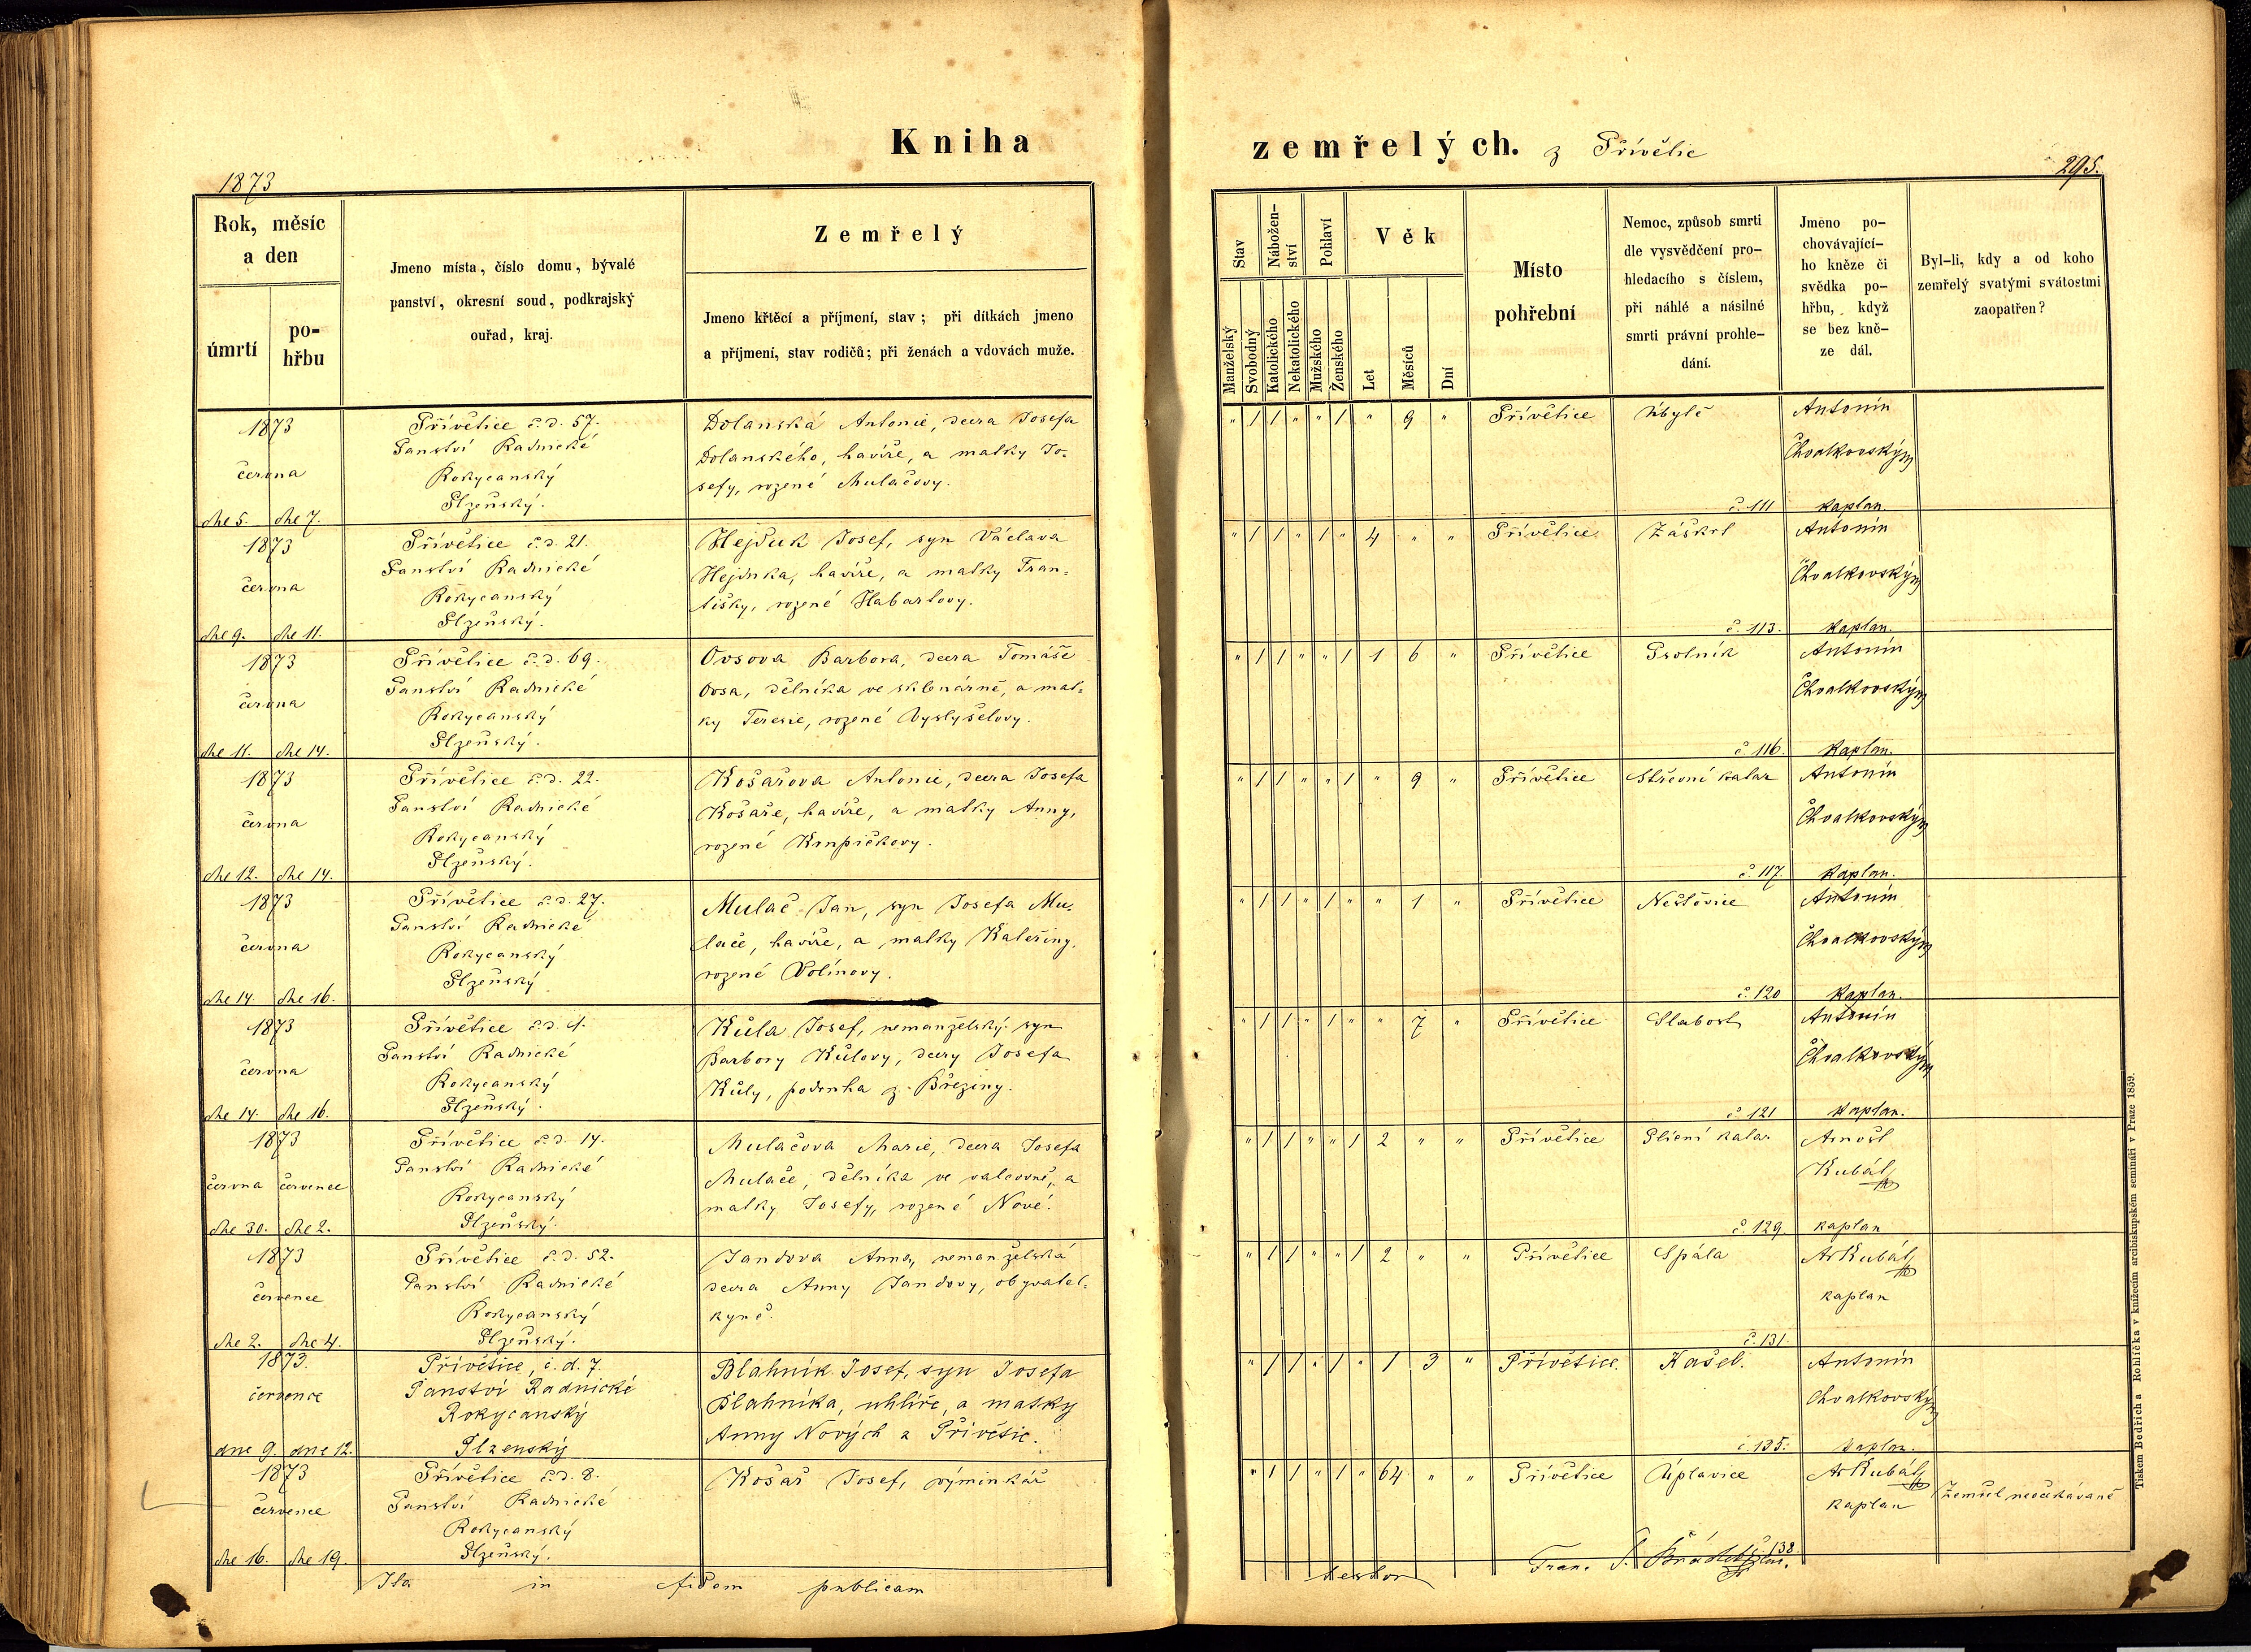 Kniha
zemřelých. z Přívětic
1873
295.
Rok, měsíc
a den
úmrtí
po-
hřbu
Jmeno místa, číslo domu, bývalé
panství, okresní soud, podkrajský
ouřad, kraj.
Zemřelý
Jmeno křtěcí a příjmení, stav; při dítkách jmeno
a příjmení, stav rodičů; při ženách a vdovách muže.
Stav
Manželský
Svobodný
Nábožen-
ství
Katolického
Nekatolického
Pohlaví
Mužského
Ženského
Věk
Let
Měsíců
Dní
Místo
pohřební
Nemoc, způsob smrti
dle vysvědčení pro-
hledacího s číslem,
při náhlé a násilné
smrti právní prohle-
dání.
Jméno po-
chovávající-
ho kněze či
svědka po-
hřbu, když
se bez kně-
ze dál.
Byl-li, kdy a od koho
zemřelý svatými svátostmi
zaopatřen?
1873
června
dne 5. dne 7.
Přívětice č.d. 57.
Panství Radnické
Rokycanský
Plzeňský.
Dolanská Antonie, dcera Josefa
Dolanského, havíře, a matky Jo-
sefy, rozené Mulačovy.
" 1 1 " " 1 " 9 "
Přívětice
Úbytě
č. 111
Antonín
Chvalkovský
kaplan
1873
června
dne 9. dne 11.
Přívětice č.d. 21.
Panství Radnické
Rokycanský
Plzeňský.
Hejduk Josef, syn Václava
Hejduka, havíře, a matky Fran-
tišky, rozené Habartovy.
" 1 1 " 1 " 4 " "
Přívětice
Záškrt
č. 113.
Antonín
Chvalkovský
kaplan.
1873
června
dne 11. dne 14.
Přívětice č.d. 69.
Panství Radnické
Rokycanský
Plzeňský.
Ovsova Barbora, dcera Tomáše
Ovsa, dělníka ve sklenárně, a mat-
ky Teresie, rozené Vyslyšelovy.
" 1 1 " " 1 1 6 "
Přívětice
Psotník
č. 116.
Antonín
Chvalkovský
kaplan.
1873
června
dne 12. dne 14.
Přívětice č.d. 22.
Panství Radnické
Rokycanský
Plzeňský.
Košařova Antonie, dcera Josefa
Košaře, havíře, a matky Anny,
rozené Krupičkovy.
" 1 1 " " 1 " 9 "
Přívětice
Střevní katar
č. 117.
Antonín
Chvalkovský
kaplan.
1873
června
dne 14. dne 16.
Přívětice č.d. 27.
Panství Radnické
Rokycanský
Plzeňský
Mulač Jan, syn Josefa Mu-
lače, havíře, a matky Kateřiny,
rozené Volínovy.
" 1 1 " 1 " " 1 "
Přívětice
Neštovice
č. 120
Antonín
Chvalkovský
kaplan.
1873
června
dne 14. dne 16.
Přívětice č.d. 1.
Panství Radnické
Rokycanský
Plzeňský.
Kůla Josef, nemanželský syn
Barbory Kůlovy, dcery Josefa
Kůly, podruha z Březiny.
" 1 1 " 1 " " 7 "
Přívětice
Slabost
č. 121
Antonín
Chvalkovský
kaplan.
1873
června července
dne 30. dne 2.
Přívětice č.d. 14.
Panství Radnické
Rokycanský
Plzeňský.
Mulačova Marie, dcera Josefa
Mulače, dělníka ve valcovně, a
matky Josefy, rozené Nové.
" 1 1 " " 1 2 " "
Přívětice
Plicní katar
č. 129.
Arnošt
Kubát
kaplan
1873
července
dne 2. dne 4.
Přívětice č.d. 52.
Panství Radnické
Rokycanský
Plzeňský.
Jandova Anna, nemanželská
dcera Anny Jandovy, obyvatel-
kyně.
" 1 1 " " 1 2 " "
Přívětice
Spála
č. 131.
Ar Kubát
kaplan
1873.
července
dne 9. dne 12.
Přívětice, č.d. 7.
Panství Radnické
Rokycanský
Plzenský
Blahník Josef, syn Josefa
Blahníka, uhlíře, a matky
Anny Nových z Přivětic.
" 1 1 " 1 " 1 3 "
Přivětice.
Kašel.
č. 135.
Antonín
Chvalkovský
kaplan.
1873
července
dne 16. dne 19.
Přívětice č.d. 8.
Panství Radnické
Rokycanský
Plzeňský.
Košař Josef, výminkář
" 1 1 " 1 " 64 " "
Přívětice
Úplavice
138.
Ar Kubát
kaplan
Zemřel neočekávaně
Ita in fidem publicam
Fran.
Tiskem Bedřicha Rohlíčka v knížecím arcibiskupském semináři v Praze 1859.